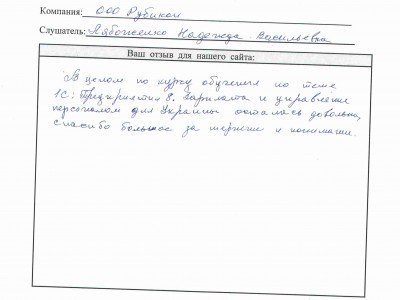 Компания: ООО Рубикон
Слушатель: Лябоженко Надежда Васильевна
Ваш отзыв для нашего сайта:
В целом по курсу обучения по теме
1С: Предприятия 8. Зарплата и управление
персоналом для Украины осталась довольна,
спасибо большое за терпение и понимание.